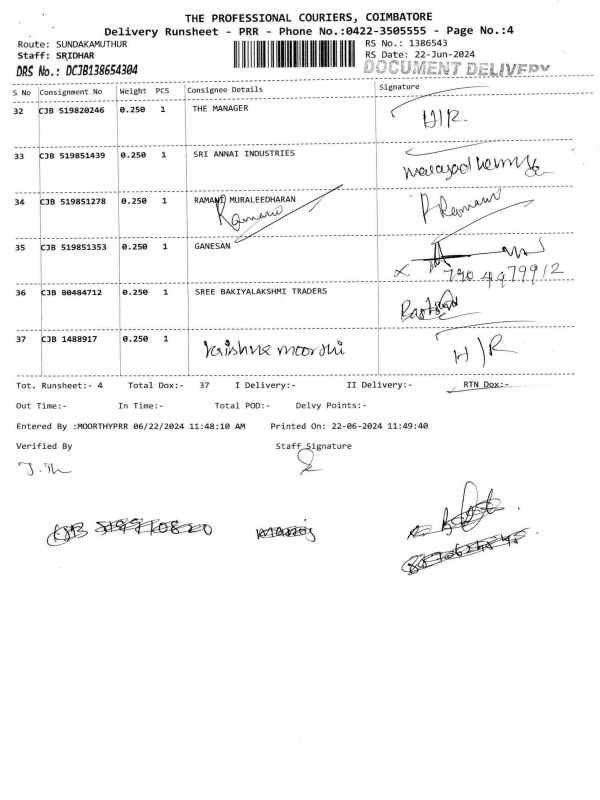 THE PROFESSIONAL COURIERS, COIMBATORE
Delivery Runsheet - PRR - Phone No.:0422-3505555 - Page No.:4
Route: SUNDAKAMUTHUR RS No.: 1386543
Staff: SRIDHAR RS Date: 22-Jun-2024
DRS No.: DCJB138654304 DOCUMENT DELIVERY
S No Consignment No Weight PCS Consignee Details Signature
32 CJB 519820246 0.250 1 THE MANAGER H/R
33 CJB 519851439 0.250 1 SRI ANNAI INDUSTRIES
34 CJB 519851278 0.250 1 RAMANI MURALEEDHARAN
Ramani P Ramani
35 CJB 519851353 0.250 1 GANESAN
36 CJB 80484712 0.250 1 SREE BAKIYALAKSHMI TRADERS
37 CJB 1488917 0.250 1 krishna moorthi H/R
Tot. Runsheet:- 4 Total Dox:- 37 I Delivery:- II Delivery:- RTN Dox:-
Out Time:- In Time:- Total POD:- Delvy Points:-
Entered By :MOORTHYPRR 06/22/2024 11:48:10 AM Printed On: 22-06-2024 11:49:40
Verified By Staff Signature